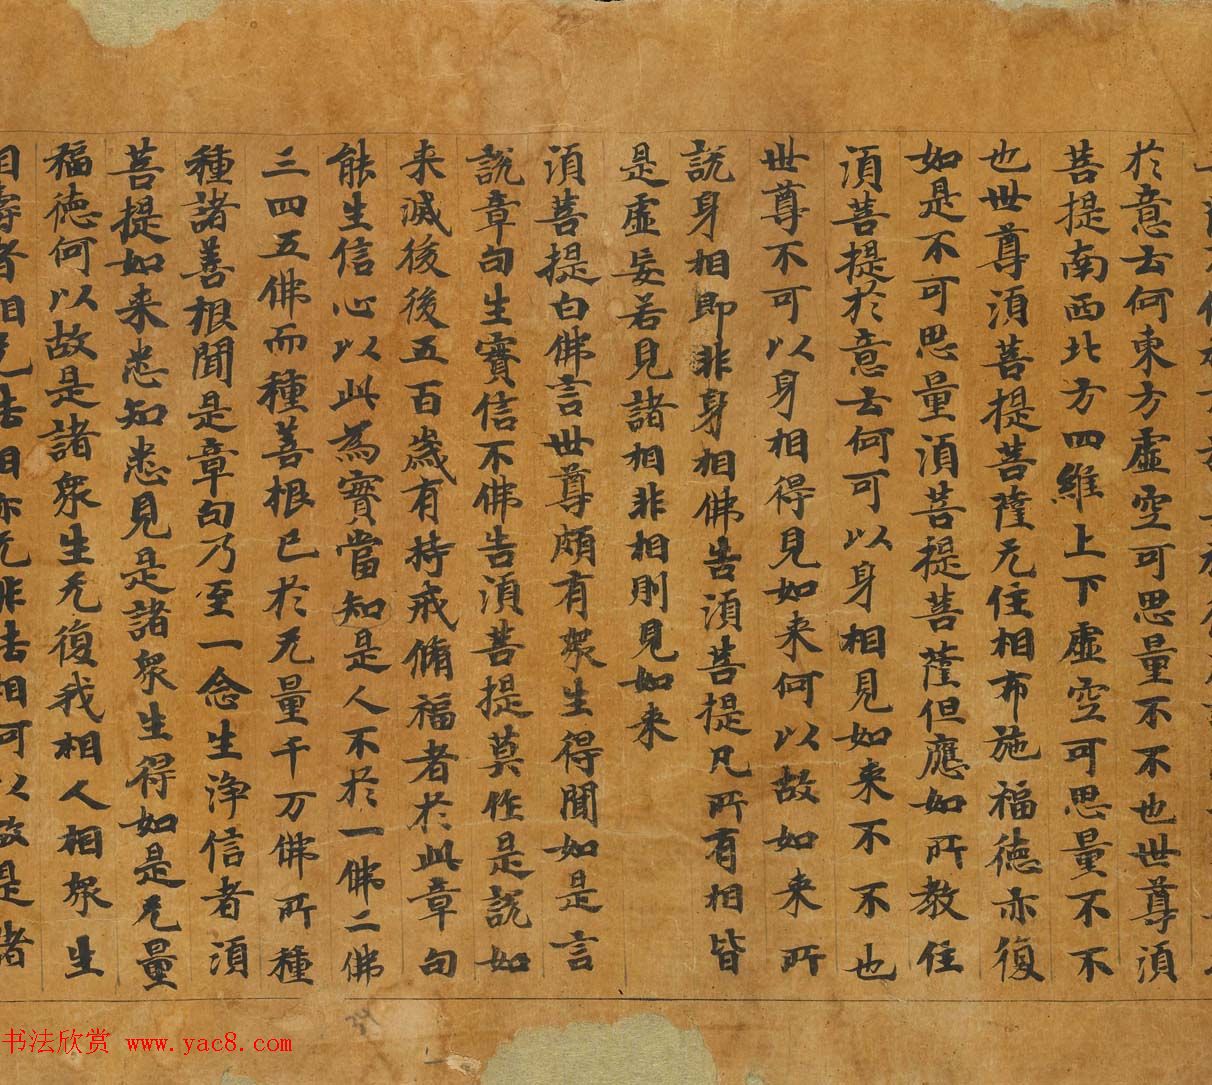 於意云何東方虛空可思量不不也世尊須
菩提南西北方四維上下虛空可思量不不
也世尊須菩提菩薩无住相布施福德亦復
如是不可思量須菩提菩薩但應如所教住
須菩提於意云何可以身相見如来不不也
世尊不可以身相得見如来何以故如来所
說身相即非身相佛告須菩提凡所有相皆
是虛妄若見諸相非相則見如来
須菩提白佛言世尊頗有衆生得聞如是言
說章句生實信不佛告須菩提莫作是說如
来滅後後五百歲有持戒脩福者於此章句
能生信心以此為實當知是人不於一佛二佛
三四五佛而種善根已於无量千万佛所種
種諸善根聞是章句乃至一念生淨信者須
菩提如来悉知悉見是諸衆生得如是无量
福德何以故是諸衆生无復我相人相衆生
相壽者相无法相亦无非法相何以故是諸
书法欣赏 www.yac8.com